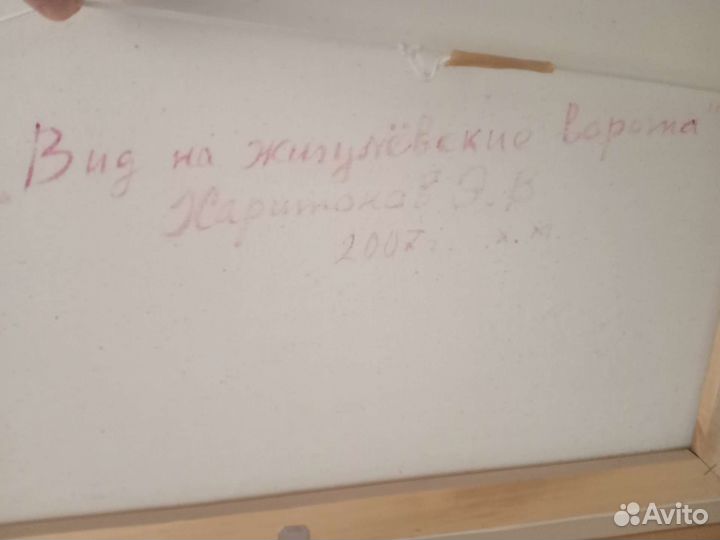 "Вид на жигулёвские ворота"
Харитонов Э.В
2007г. х.м.
Avito